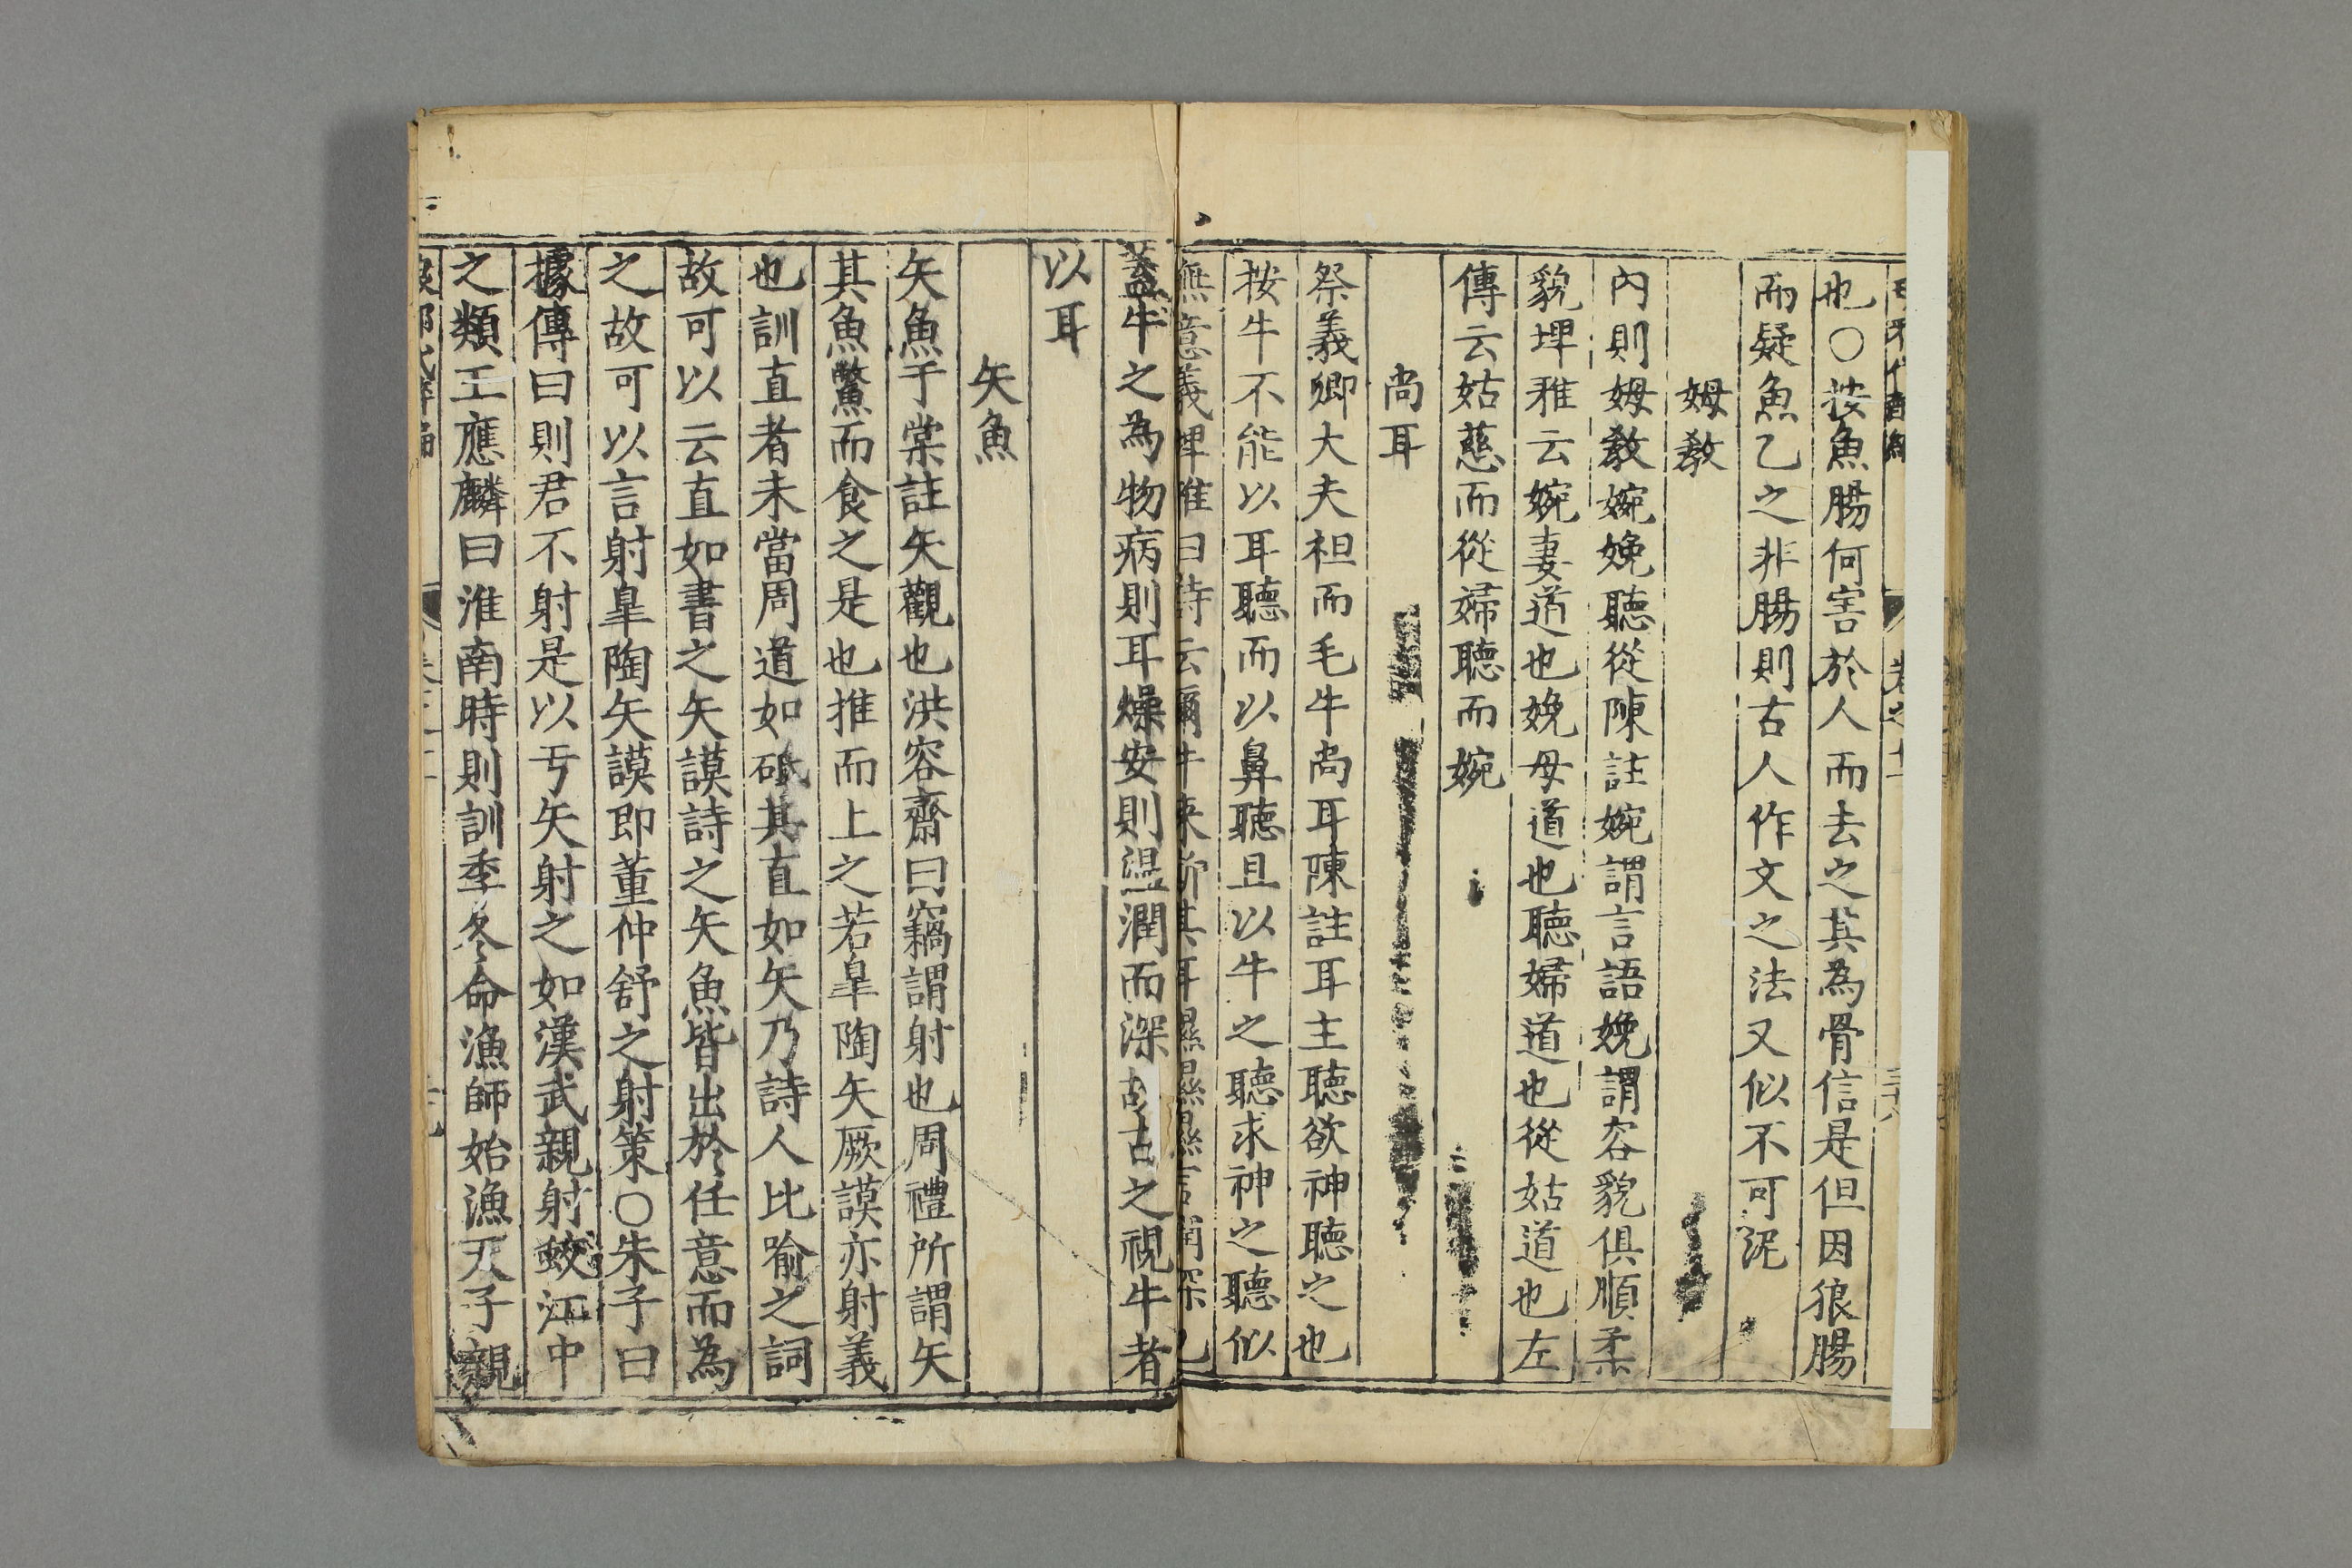 也○按魚腸何害於人而去之其為骨信是但因狼腸
而疑魚乙之非腸則古人作文之法又似不可泥
姆教
內則姆教婉娩聽從陳註婉謂言語娩謂容貌俱順柔
貌埤雅云婉妻道也娩母道也聽婦道也從姑道也左
傳云姑慈而從婦聽而婉
尚耳
祭義卿大夫袒而毛牛尚耳陳註耳主聽欲神聽之也
按牛不能以耳聽而以鼻聽且以牛之聽求神之聽似
無意義埤雅曰詩云爾牛來斯其耳濕濕濕言潤澤也
蓋牛之為物病則耳燥安則溫潤而深故古之視牛者
以耳
矢魚
矢魚于棠註矢觀也洪容齋曰竊謂射也周禮所謂矢
其魚鱉而食之是也推而上之若皐陶矢厥謨亦射義
也訓直者未當周道如砥其直如矢乃詩人比喻之詞
故可以云直如書之矢謨詩之矢魚皆出於任意而為
之故可以言射皐陶矢謨即董仲舒之射策○朱子曰
據傳曰則君不射是以弓矢射之如漢武親射蛟江中
之類王應麟曰淮南時則訓季冬命漁師始漁天子親